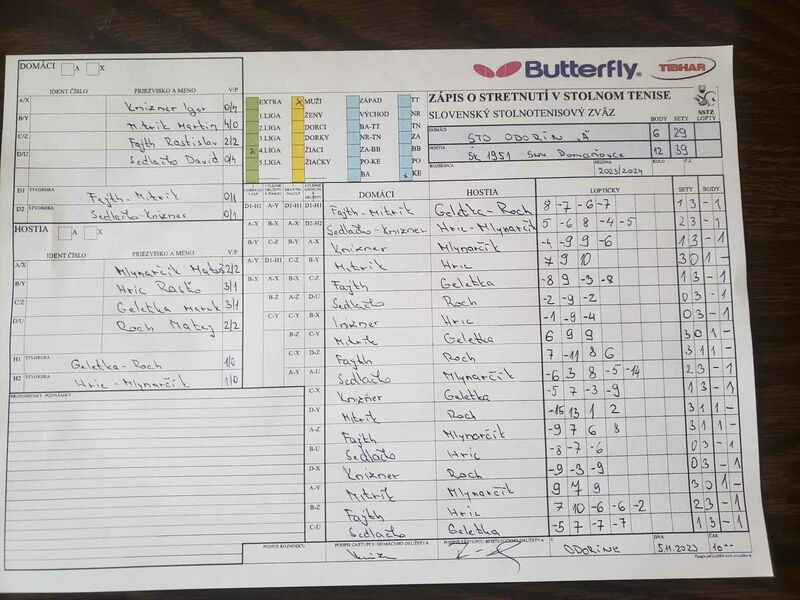 DOMÁCI A X
IDENT.ČÍSLO PRIEZVISKO A MENO V/P
A/X Knixner Igor 0/4
B/Y Mitrík Martin 4/0
C/Z Fajth Rastislav 2/2
D/U Sedlačko David 0/4
D1 ŠTVORHRA Fajth-Mitrík 0/1
D2 ŠTVORHRA Sedlačko-Knixner 0/1
HOSTIA A X
IDENT.ČÍSLO PRIEZVISKO A MENO V/P
A/X Mlynarčik Matúš 2/2
B/Y Hric Rasťo 3/1
C/Z Geletka Marek 3/1
D/U Roch Matej 2/2
H1 ŠTVORHRA Geletka-Roch 1/0
H2 ŠTVORHRA Hric-Mlynarčik 1/0
PRIPOMIENKY, POZNÁMKY
Butterfly TIBHAR
EXTRA x MUŽI ZÁPAD TT
1.LIGA ŽENY VÝCHOD NR
2.LIGA DORCI BA-TT TN
3.LIGA DORKY NR-TN ZA
x 4.LIGA ŽIACI ZA-BB BB
5.LIGA ŽIAČKY PO-KE PO
BA x KE
ZÁPIS O STRETNUTÍ V STOLNOM TENISE
SLOVENSKÝ STOLNOTENISOVÝ ZVÄZ
SSTZ
BODY SETY LOPTY
DOMÁCI STO ODORÍN "A" 6 29
HOSTIA ŠK 1951 SNV Domaňovce 12 39
ROZHODCA SEZÓNA 2023/2024 KOLO Č.
DOMÁCI HOSTIA LOPTIČKY SETY BODY
D1-H1 A-Y D1-H1 D1-H1 Fajth-Mitrík Geletka-Roch 8 -7 -6 -7 1 3 - 1
A-X B-X A-X D2-H2 Sedlačko-Knixner Hric-Mlynarčik 5 -6 8 -4 -5 2 3 - 1
B-Y C-Z B-Y A-X Knixner Mlynarčik -4 -9 9 -6 1 3 - 1
A-Y D1-H1 C-Z B-Y Mitrík Hric 7 9 10 3 0 1 -
B-X A-X B-X C-Z Fajth Geletka -8 9 -3 -8 1 3 - 1
B-Z A-Z D-U Sedlačko Roch -2 -9 -2 0 3 - 1
C-Y C-Y B-X Inixner Hric -1 -9 -4 0 3 - 1
B-Z C-Y Mitrík Geletka 6 9 9 3 0 1 -
C-X D-Z Fajth Roch 7 -11 8 6 3 1 1 -
A-Y A-U Sedlačko Mlynarčik -6 3 8 -5 -14 2 3 - 1
C-X Knixner Geletka -5 7 -3 -9 1 3 - 1
D-Y Mitrík Roch -15 13 1 2 3 1 1 -
A-Z Fajth Mlynarčik -9 7 6 8 3 1 1 -
B-U Sedlačko Hric -8 -7 -6 0 3 - 1
D-X Knixner Roch -9 -3 -9 0 3 - 1
A-Y Mitrík Mlynarčik 9 7 9 3 0 1 -
B-Z Fajth Hric 7 10 -6 -6 -2 2 3 - 1
C-U Sedlačko Geletka -5 7 -7 -7 1 3 - 1
PODPIS ROZHODCU PODPIS ZÁSTUPCU DOMÁCEHO DRUŽSTVA PODPIS ZÁSTUPCU HOSŤUJÚCEHO DRUŽSTVA V ODORÍNE DŇA 5.11.2023 ČAS 10--